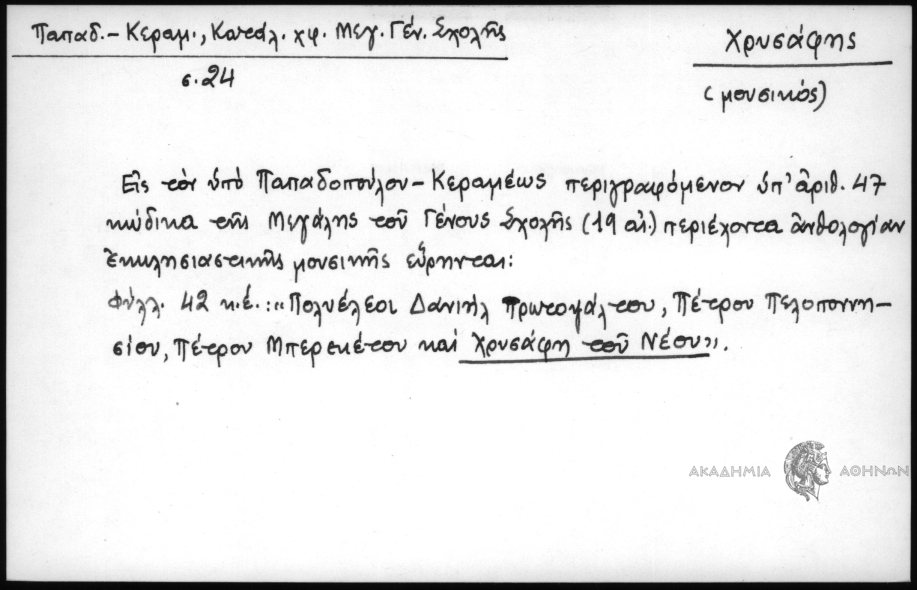 Παπαδ.-Κεραμ., Κατάλ. χφ. Μεγ. Γέν. Σχολῆς
σ. 24
Χρυσάφης
(μουσικός)
Εἰς τὸν ὑπὸ Παπαδοπούλου-Κεραμέως περιγραφόμενον ὑπ' ἀριθ. 47
κώδικα τῆς Μεγάλης τοῦ Γένους Σχολῆς (19 αἰ.) περιέχοντα ἀνθολογίαν
ἐκκλησιαστικῆς μουσικῆς εὕρηνται:
Φύλλ. 42 κ.ἑ.: "Πολυέλεοι Δανιὴλ Πρωτοψάλτου, Πέτρου Πελοποννη-
σίου, Πέτρου Μπερεκέτου καὶ Χρυσάφη τοῦ Νέου".
ΑΚΑΔΗΜΙΑ ΑΘΗΝΩΝ